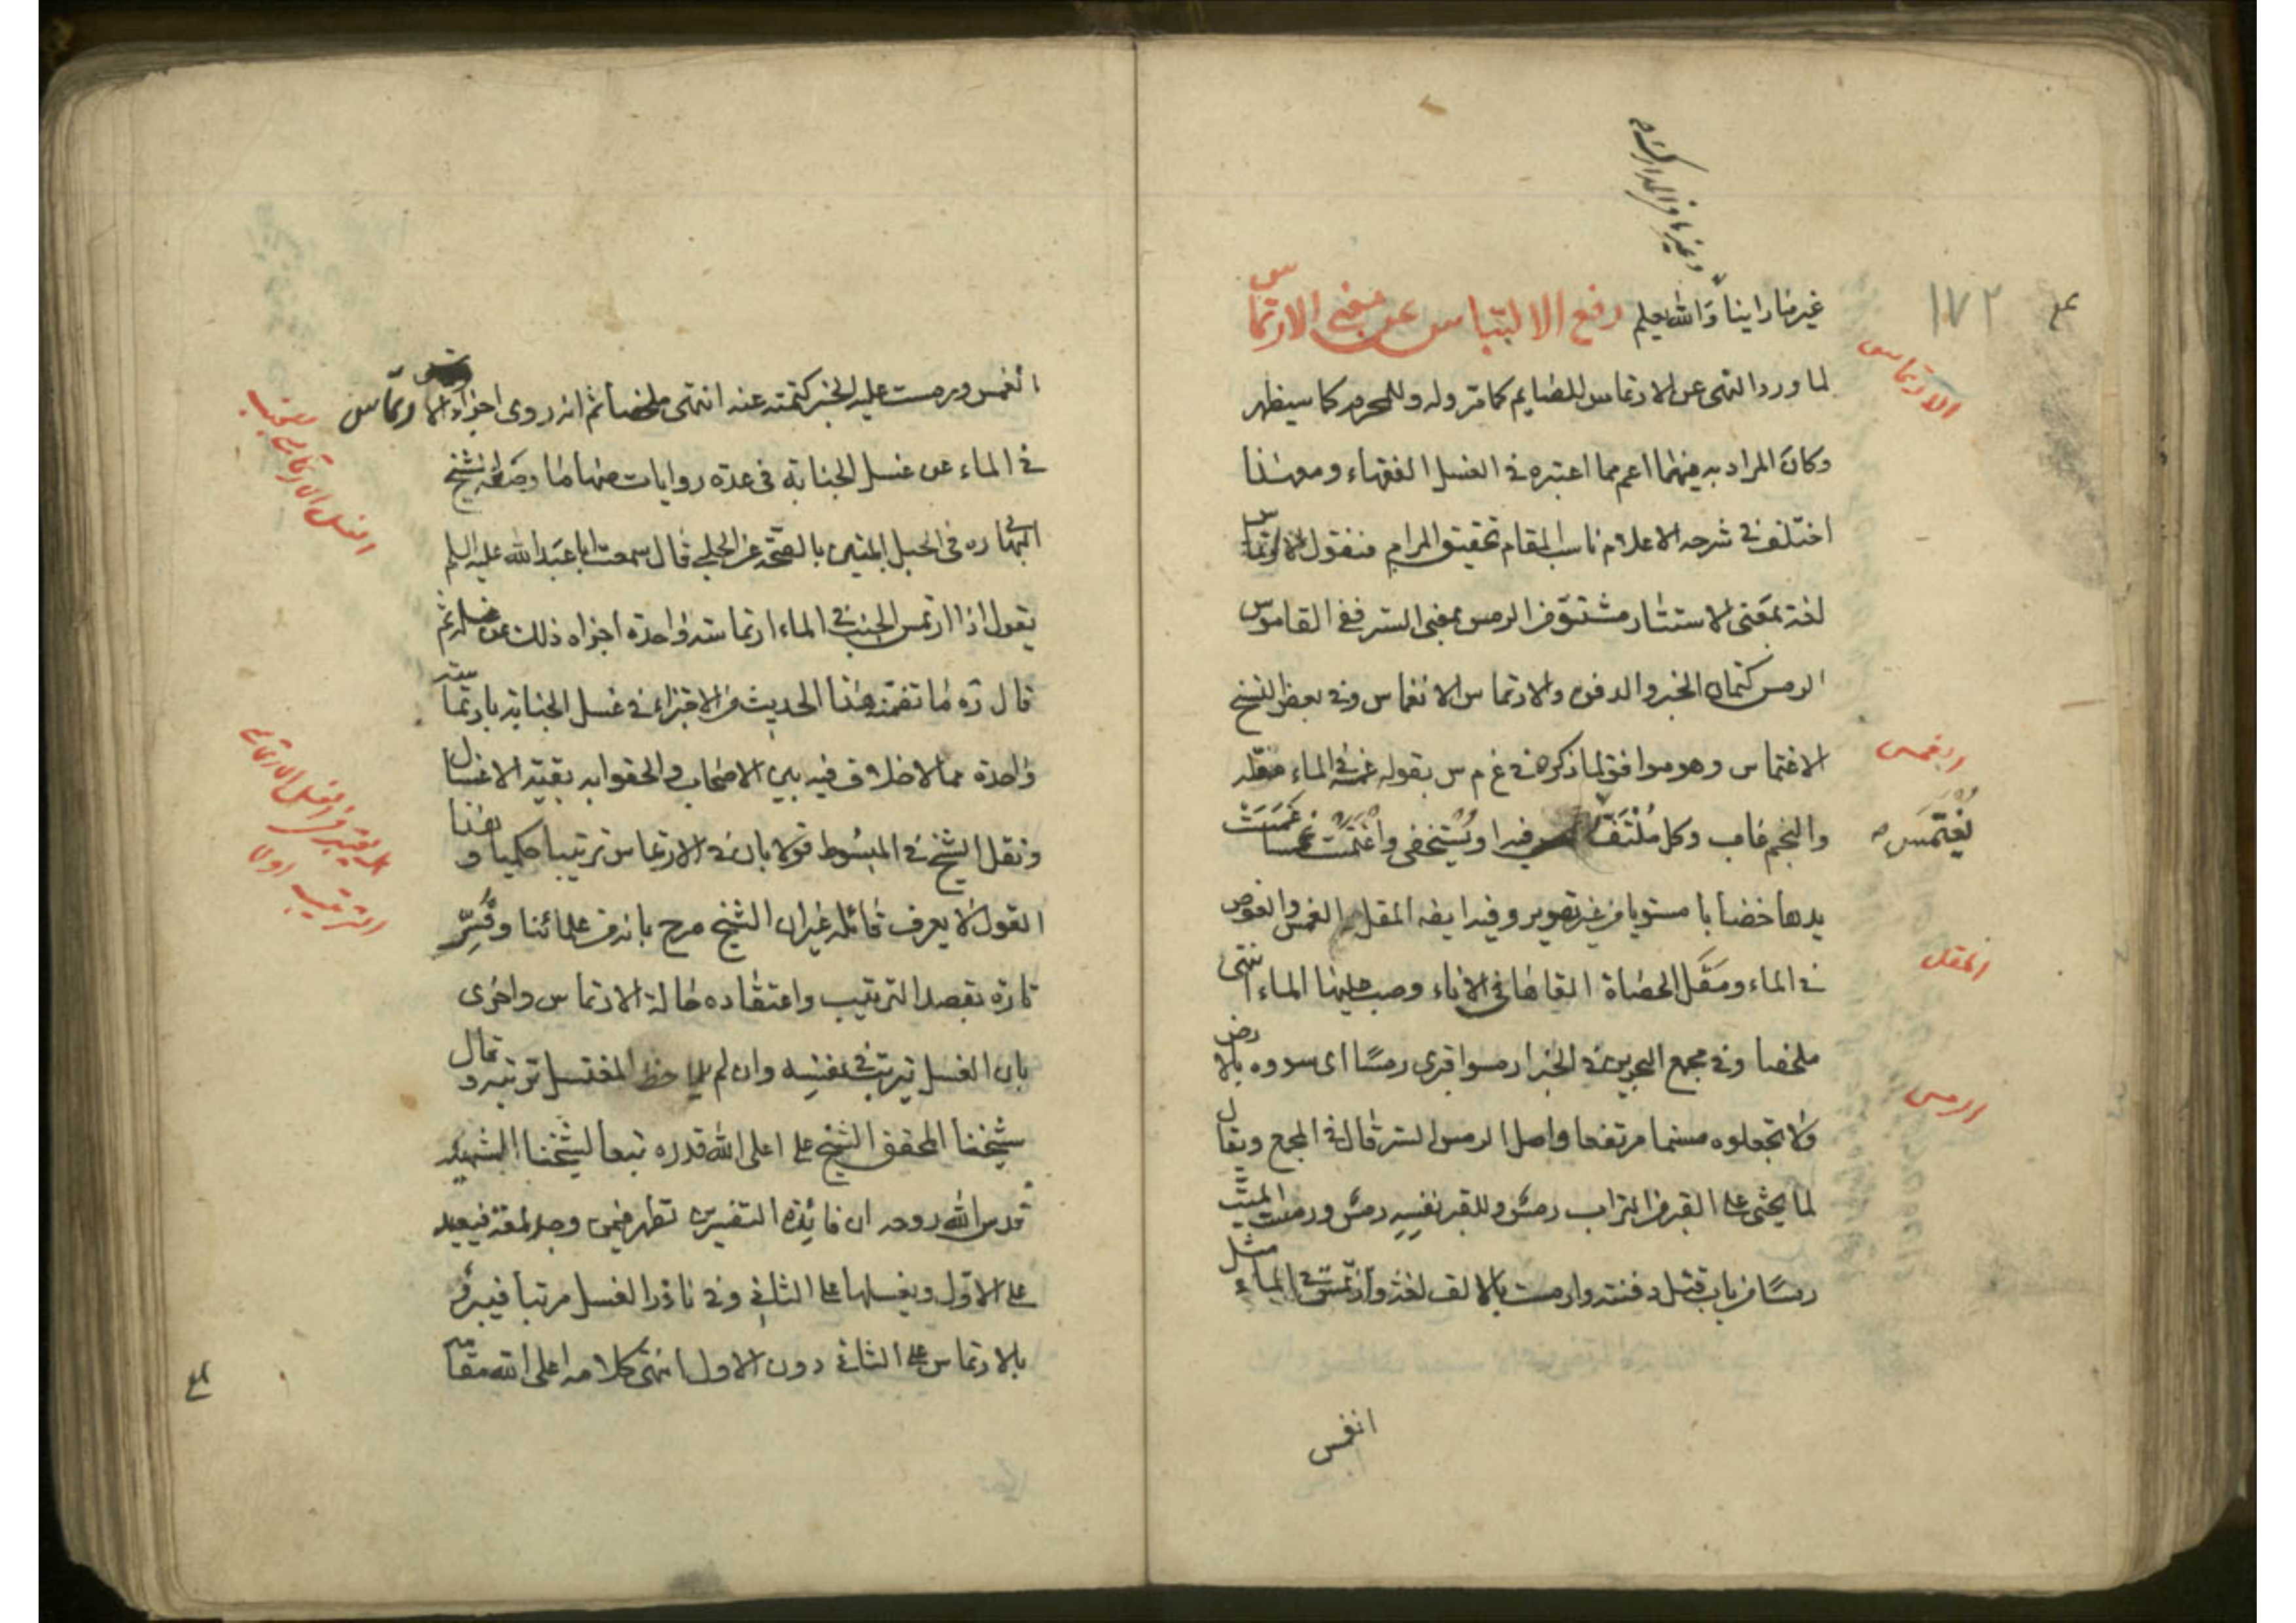 وغيرها في المدارك
١٧٢
غير ما رأينا والله يعلم رفع الالتباس عن معنى الارتماس
الارتماس
لما ورد النهى عن الارتماس للصايم كما مر وله وللمحرم كما سيظهر
وكان المراد به منهما اعم مما اعتبره فى الغسل الفقهاء ومع هذا
اختلف فى شرحه الاعلام ناسب المقام تحقيق المرام فنقول الارتماس
لغة بمعنى الاستتار مشتق من الرمس بمعنى الستر ففى القاموس
الرمس كتمان الخبر والدفن والارتماس الانغماس وفى بعض النسخ
الاغتماس وهو موافق لما ذكره فى غ م س بقوله غمسه فى الماء مقله
والنجم غاب وكل ملتف يغتمس فيه او يستخفى واغتمست غمست
يغتمس
يدها خضابا مستويا من غير تصوير وفيه ايضا المقل الغمس والغوص
المقل
فى الماء ومقل الحصاة القاها فى الاناء وصب عليها الماء انتهى
ملخصا وفى مجمع البحرين فى الخبر ارمسوا قبرى رمسا اى سووه بالارض
الرمس
ولا تجعلوه مسنما مرتفعا واصل الرمس الستر قال فى المجمع ويقال
لما يحثى على القبر من التراب رمس وللقبر نفسه رمس ورمست الميت
رمسا من باب قتل دفنته وارمست بالالف لغة وارتمس فى الماء مثل
انغمس
انغمس ورمست عليه الخبر كتمته عنه انتهى ملخصا ثم انه روى اجزاء الارتماس
فى الماء عن غسل الجنابة فى عدة روايات منها ما وصفه شيخنا
البهائى ره فى الحبل المتين بالصحة عن الحلبى قال سمعت ابا عبد الله عليه السلم
يقول اذا ارتمس الجنب فى الماء ارتماسة واحدة اجزاه ذلك عن غسله ثم
قال ره ما تضمنه هذا الحديث من الاجتزاء فى غسل الجنابة بارتماسة
واحدة مما لا خلاف فيه بين الاصحاب والحقوا به بقية الاغسال
ونقل الشيخ فى المبسوط قولا بان فى الارتماس ترتيبا حكميا وهذا
القول لا يعرف قائله غير ان الشيخ صرح بانه من علمائنا وفسر
تارة بقصد الترتيب واعتقاده حالة الارتماس واخرى
بان الغسل يترتب فى نفسه وان لم يلاحظ المغتسل ترتيبه وقال
شيخنا المحقق الشيخ على اعلى الله قدره تبعا لشيخنا الشهيد
قدس الله روحه ان فائدة التفسيرين تظهر فيمن وجد لمعة فيعيد
على الاول ويغسلها على الثانى وفى ناذر الغسل مرتبا فيبرء
بالارتماس على الثانى دون الاول انتهى كلامه اعلى الله مقامه